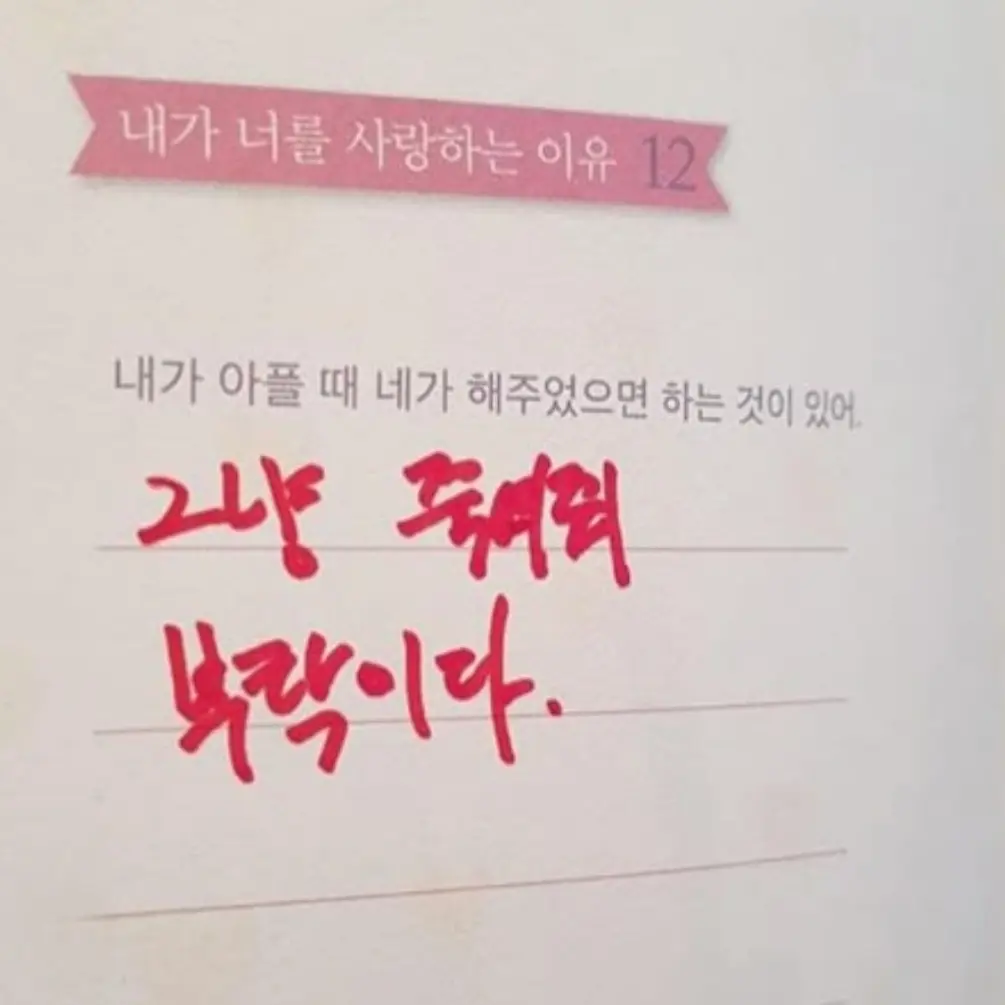 내가 너를 사랑하는 이유 12
내가 아플 때 네가 해주었으면 하는 것이 있어.
그냥 죽여줘
부탁이다.